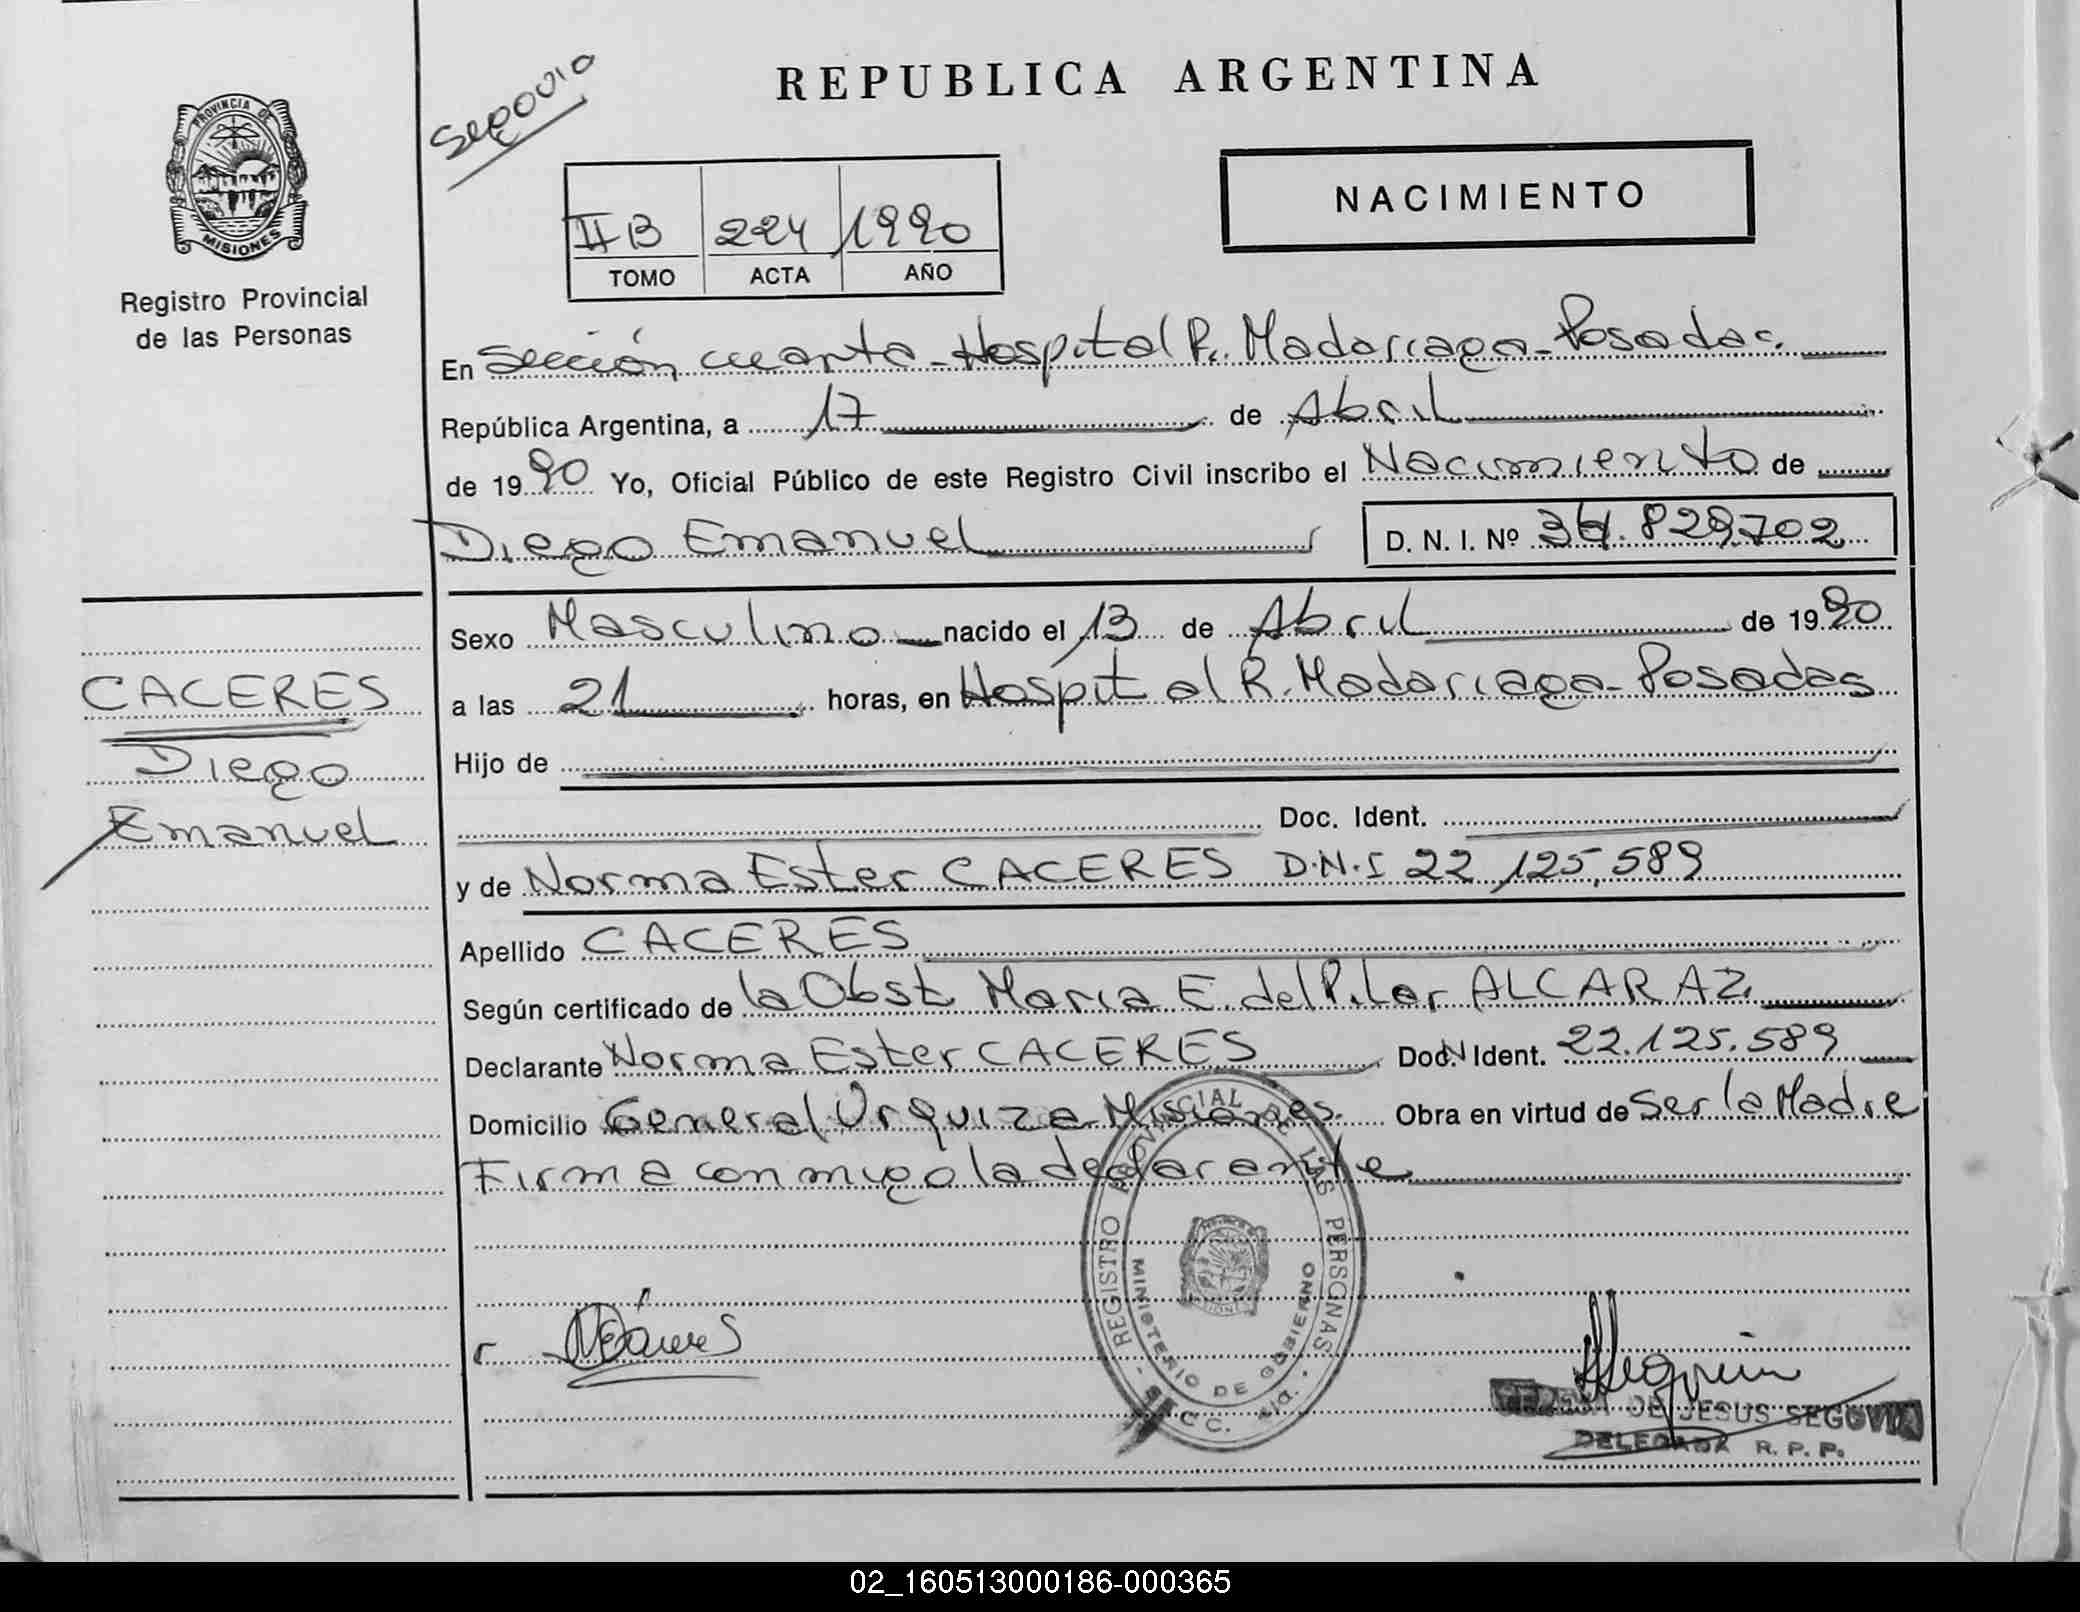 REPUBLICA ARGENTINA
Segovia
PROVINCIA DE
MISIONES
Registro Provincial
de las Personas
NACIMIENTO
II B 224 1990
TOMO ACTA AÑO
En Sección cuarta - Hospital R. Madariaga - Posadas.
República Argentina, a 17 de Abril
de 1990 Yo, Oficial Público de este Registro Civil inscribo el Nacimiento de
Diego Emanuel D. N. I. Nº .829.702
Sexo Masculino nacido el 13 de Abril de 1990
a las 21 horas, en Hospital R. Madariaga - Posadas
Hijo de
Doc. Ident.
y de Norma Ester CACERES D.N.I 22.125.589
Apellido CACERES
Según certificado de la Obst. Maria E. del Pilar ALCARAZ
Declarante Norma Ester CACERES Doc. N Ident. 22.125.589
Domicilio General Urquiza - Misiones. Obra en virtud de Ser la Madre
Firma conmigo la declarante
CACERES
Diego
Emanuel
REGISTRO PROVINCIAL DE LAS PERSONAS
MINISTERIO DE GOBIERNO
TERESA DE JESUS SEGOVIA
DELEGADA R. P. P.
02_160513000186-000365